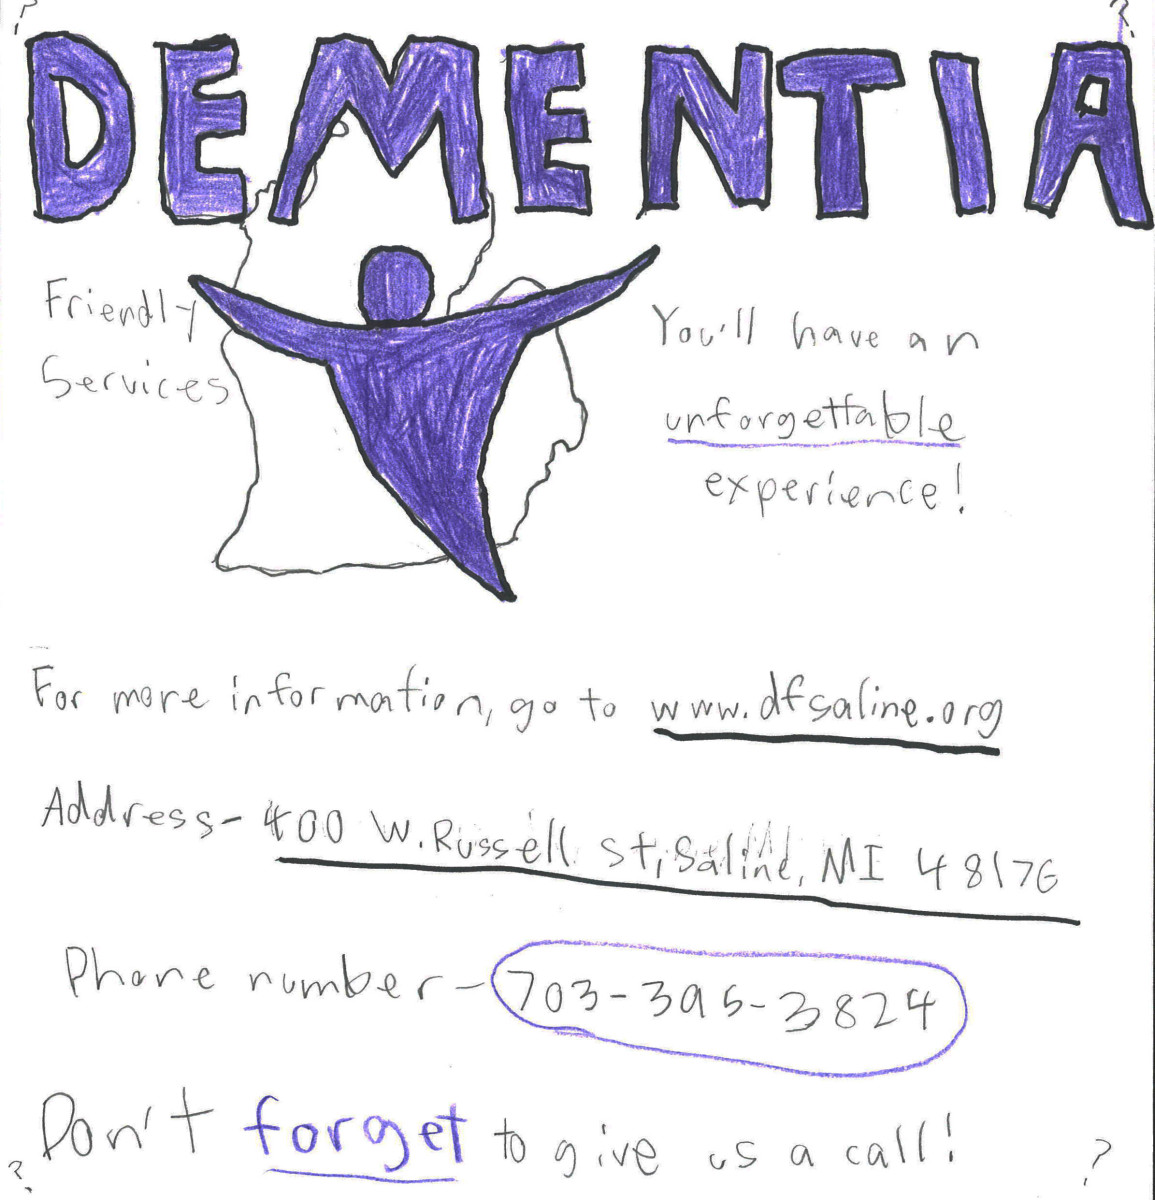 ? ?
DEMENTIA
Friendly
Services
You'll have an
unforgettable
experience!
For more information, go to www.dfsaline.org
Address- 400 W. Russell St, Saline, MI 48176
Phone number- 703-395-3824
Don't forget to give us a call!
? ?